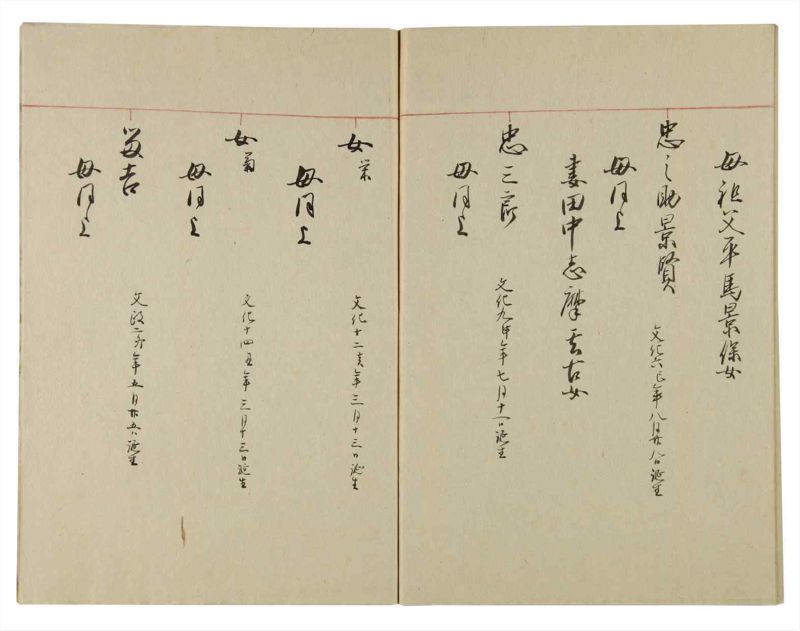 母祖父平馬景保女
忠之助景賢
文化六巳年八月廿八日誕生
母同上
妻田中志摩玄古女
忠三郎
文化九申年七月十一日誕生
母同上
女栄
文化十二亥年三月十三日誕生
母同上
女菊
文化十四丑年三月十三日誕生
母同上
留吉
文政二卯年五月廿五日誕生
母同上